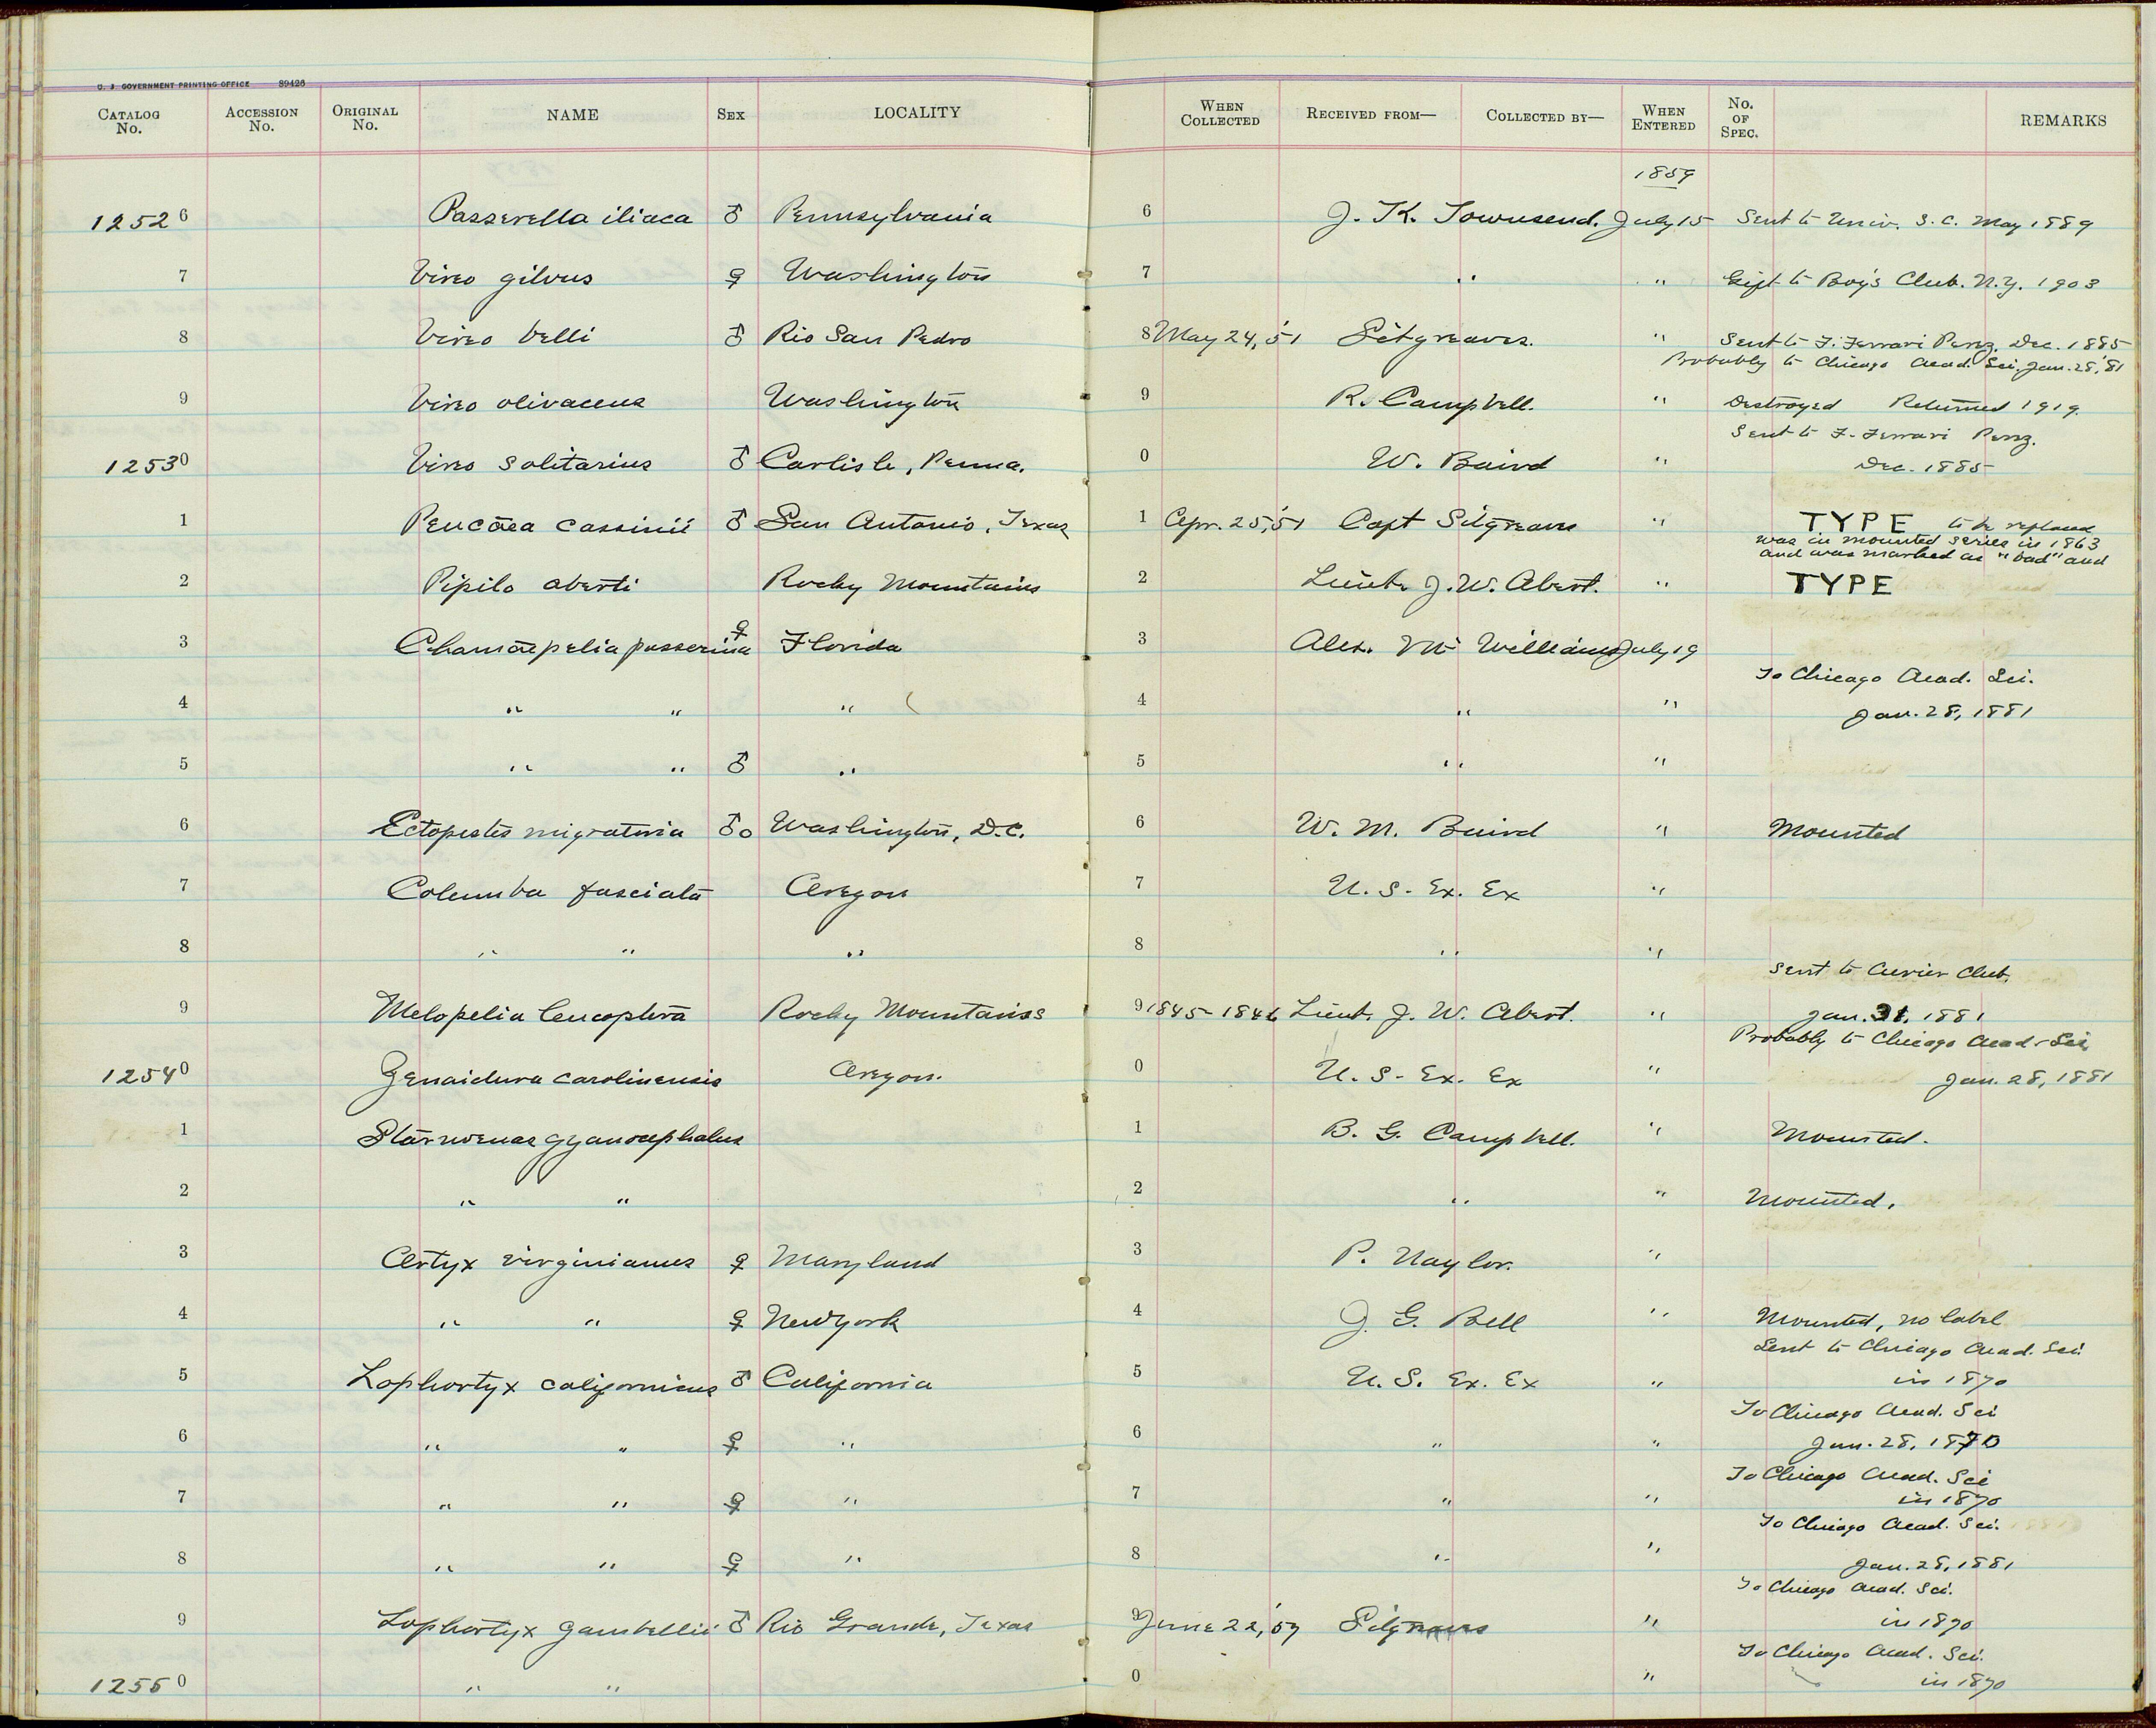 U. S. GOVERNMENT PRINTING OFFICE 89426
CATALOG No. ACCESSION No. ORIGINAL No. NAME SEX LOCALITY WHEN COLLECTED RECEIVED FROM— COLLECTED BY— WHEN ENTERED No. OF SPEC. REMARKS
1859
12526 Passerella iliaca ♂ Pennsylvania 6 J. K. Townsend. July 15 Sent to Univ. S. C. May 1889
7 Vireo gilvus ♀ Washington 7 " " Gift to Boy's Club. N.Y. 1903
8 Vireo belli ♂ Rio San Pedro 8 May 24, '51 Sitgreaves. " Sent to F. Ferrari Perez. Dec. 1885
Probably to Chicago Acad. Sci. Jan. 28, '81
9 Vireo olivaceus Washington 9 R. Campbell. " Destroyed Returned 1919.
Sent to F. Ferrari Perez.
12530 Vireo solitarius ♂ Carlisle, Penna. 0 W. Baird " Dec. 1885
1 Peucaea cassinii ♂ San Antonio, Texas 1 Apr. 25, '51 Capt Sitgreaves " TYPE to be replaced
was in mounted series in 1863
and was marked as "bad" and
2 Pipilo aberti Rocky Mountains 2 Lieut. J. W. Abert. " TYPE
3 Chamaepelia passerina ♀ Florida 3 Alex. Mc Williams July 19
To Chicago Acad. Sci.
4 " " " ( 4 " " Jan. 28, 1881
5 " " ♂ " 5 " "
6 Ectopestes migratoria ♂o Washington, D.C. 6 W. M. Baird " Mounted
7 Columba fasciata Oregon 7 U. S. Ex. Ex "
8 " " " 8 " "
Sent to Cuvier Club.
9 Melopelia leucoptera Rocky Mountains 9 1845-1846 Lieut. J. W. Abert. " Jan. 31, 1881
Probably to Chicago Acad. Sci
12540 Zenaidura carolinensis Oregon. 0 U. S. Ex. Ex " Jan. 28, 1881
1 Starnoenas cyanocephalus 1 B. G. Campbell. " Mounted.
2 " " 2 " " Mounted.
3 Ortyx virginianus ♀ Maryland 3 P. Naylor. "
4 " " ♀ New York 4 J. G. Bell " Mounted, no label
Sent to Chicago Acad. Sci.
5 Lophortyx californicus ♂ California 5 U. S. Ex. Ex " in 1870
To Chicago Acad. Sci
6 " " ♀ " 6 " " Jan. 28, 1870
To Chicago Acad. Sci
7 " " ♀ " 7 " " in 1870
To Chicago Acad. Sci.
8 " " ♀ " 8 " " Jan. 28, 1881
To Chicago Acad. Sci.
9 Lophortyx gambellii ♂ Rio Grande, Texas 9 June 22, '5 Sitgreaves " in 1870
To Chicago Acad. Sci.
12550 " " 0 " in 1870